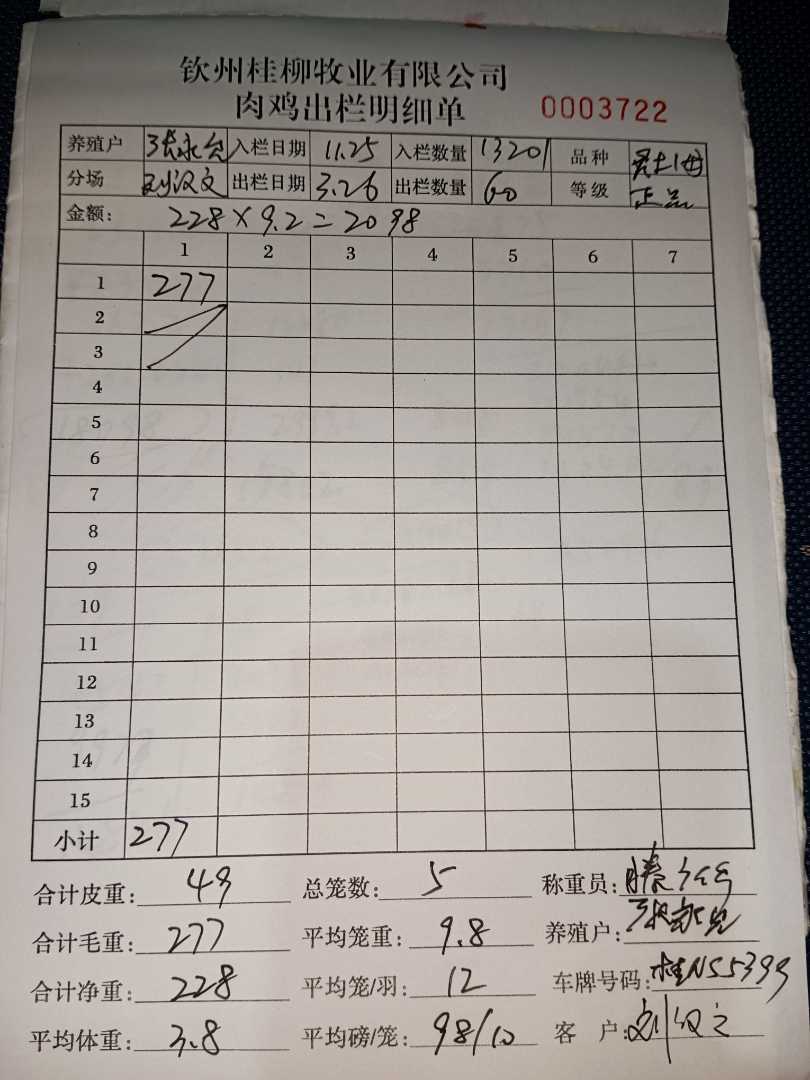 钦州桂柳牧业有限公司
肉鸡出栏明细单 0003722
养殖户 入栏日期 11.25 入栏数量 13201 品种 土
分场 刘汉文 出栏日期 3.26 出栏数量 60 等级 正品
金额: 228×9.2=2098
1 2 3 4 5 6 7
1 277
2
3
4
5
6
7
8
9
10
11
12
13
14
15
小计 277
合计皮重: 49 总笼数: 5 称重员:
合计毛重: 277 平均笼重: 9.8 养殖户:
合计净重: 228 平均笼/羽: 12 车牌号码: 桂N55399
平均体重: 3.8 平均磅/笼: 98/10 客 户: 刘汉文